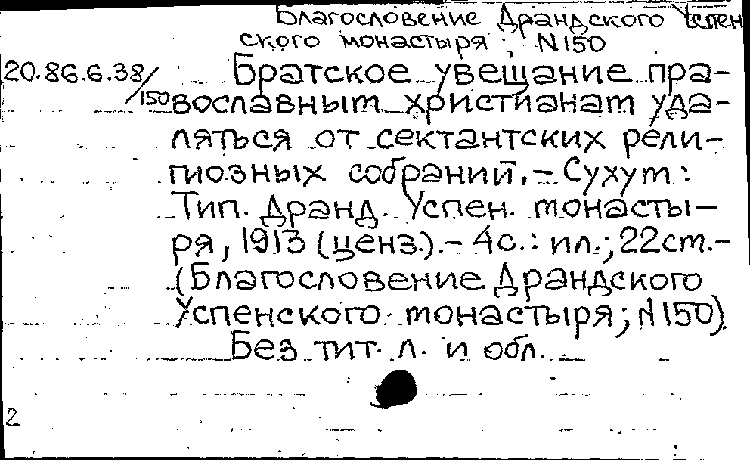 Благословение Драндского Успен
ского монастыря; N150
20.86.6.38/150
Братское увещание пра-
вославным христианам уда-
ляться от сектантских рели-
гиозных собраний. - Сухум:
Тип. Дранд. Успен. монасты-
ря, 1913 (ценз.). - 4с.: ил.; 22см. -
(Благословение Драндского
Успенского монастыря; N150).
Без тит. л. и обл.
2